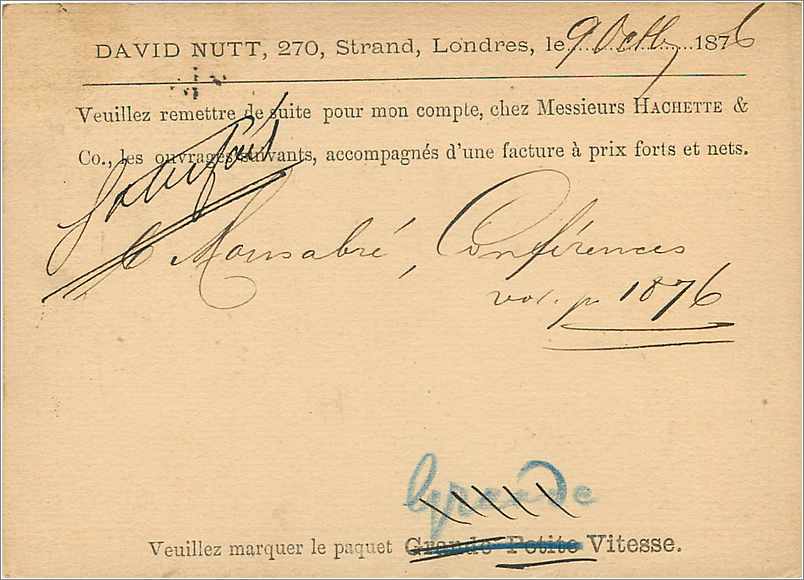 DAVID NUTT, 270, Strand, Londres, le 9 Octb 1876
Veuillez remettre de suite pour mon compte, chez Messieurs HACHETTE &
Co., les ouvrages suivants, accompagnés d'une facture à prix forts et nets.
Monsabré, Conférences
vol. p 1876
Grande
Veuillez marquer le paquet Grande Petite Vitesse.